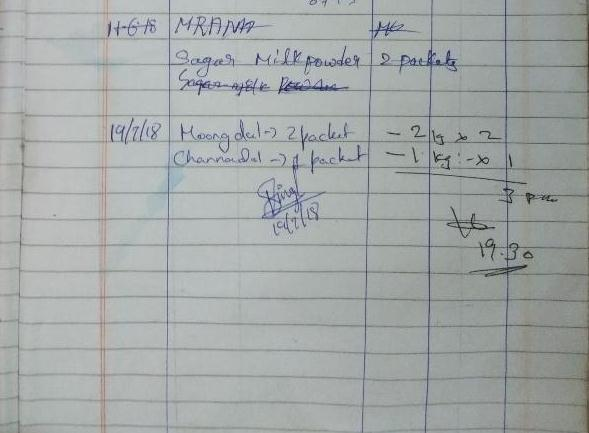 11-6-18 MRANA
Sagar Milk powder 2 packets
Sagar milk Powder
19/7/18 Moong dal → 2 packet - 2 kg x 2
Channadal → 1 packet - 1 kg :- x 1
3
19/7/18
19.30